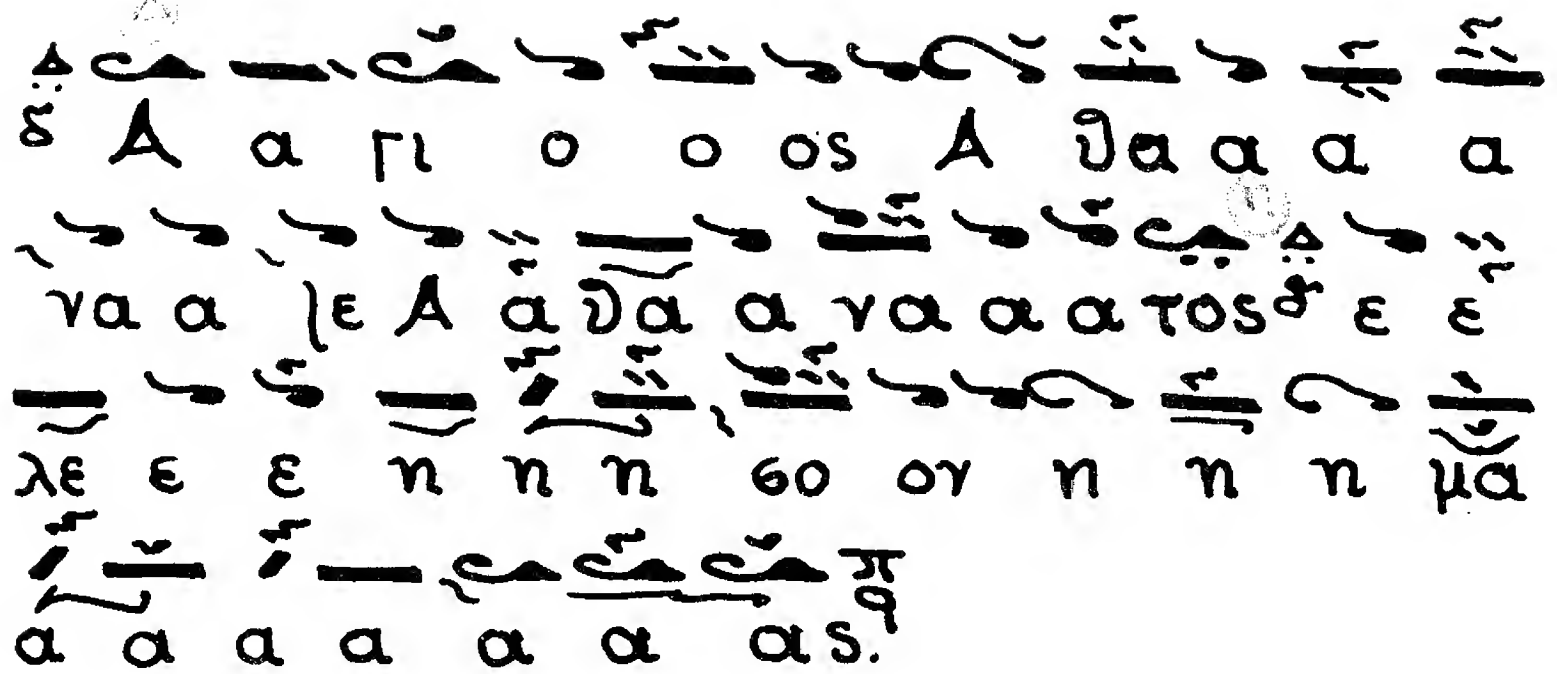 δ Α α γι ο ο ος Α ϑα α α α
να α Α α ϑα α να α α α τος δ ε ε
λε ε ε η η η σο ον η η η μα
α α α α α α ας. π